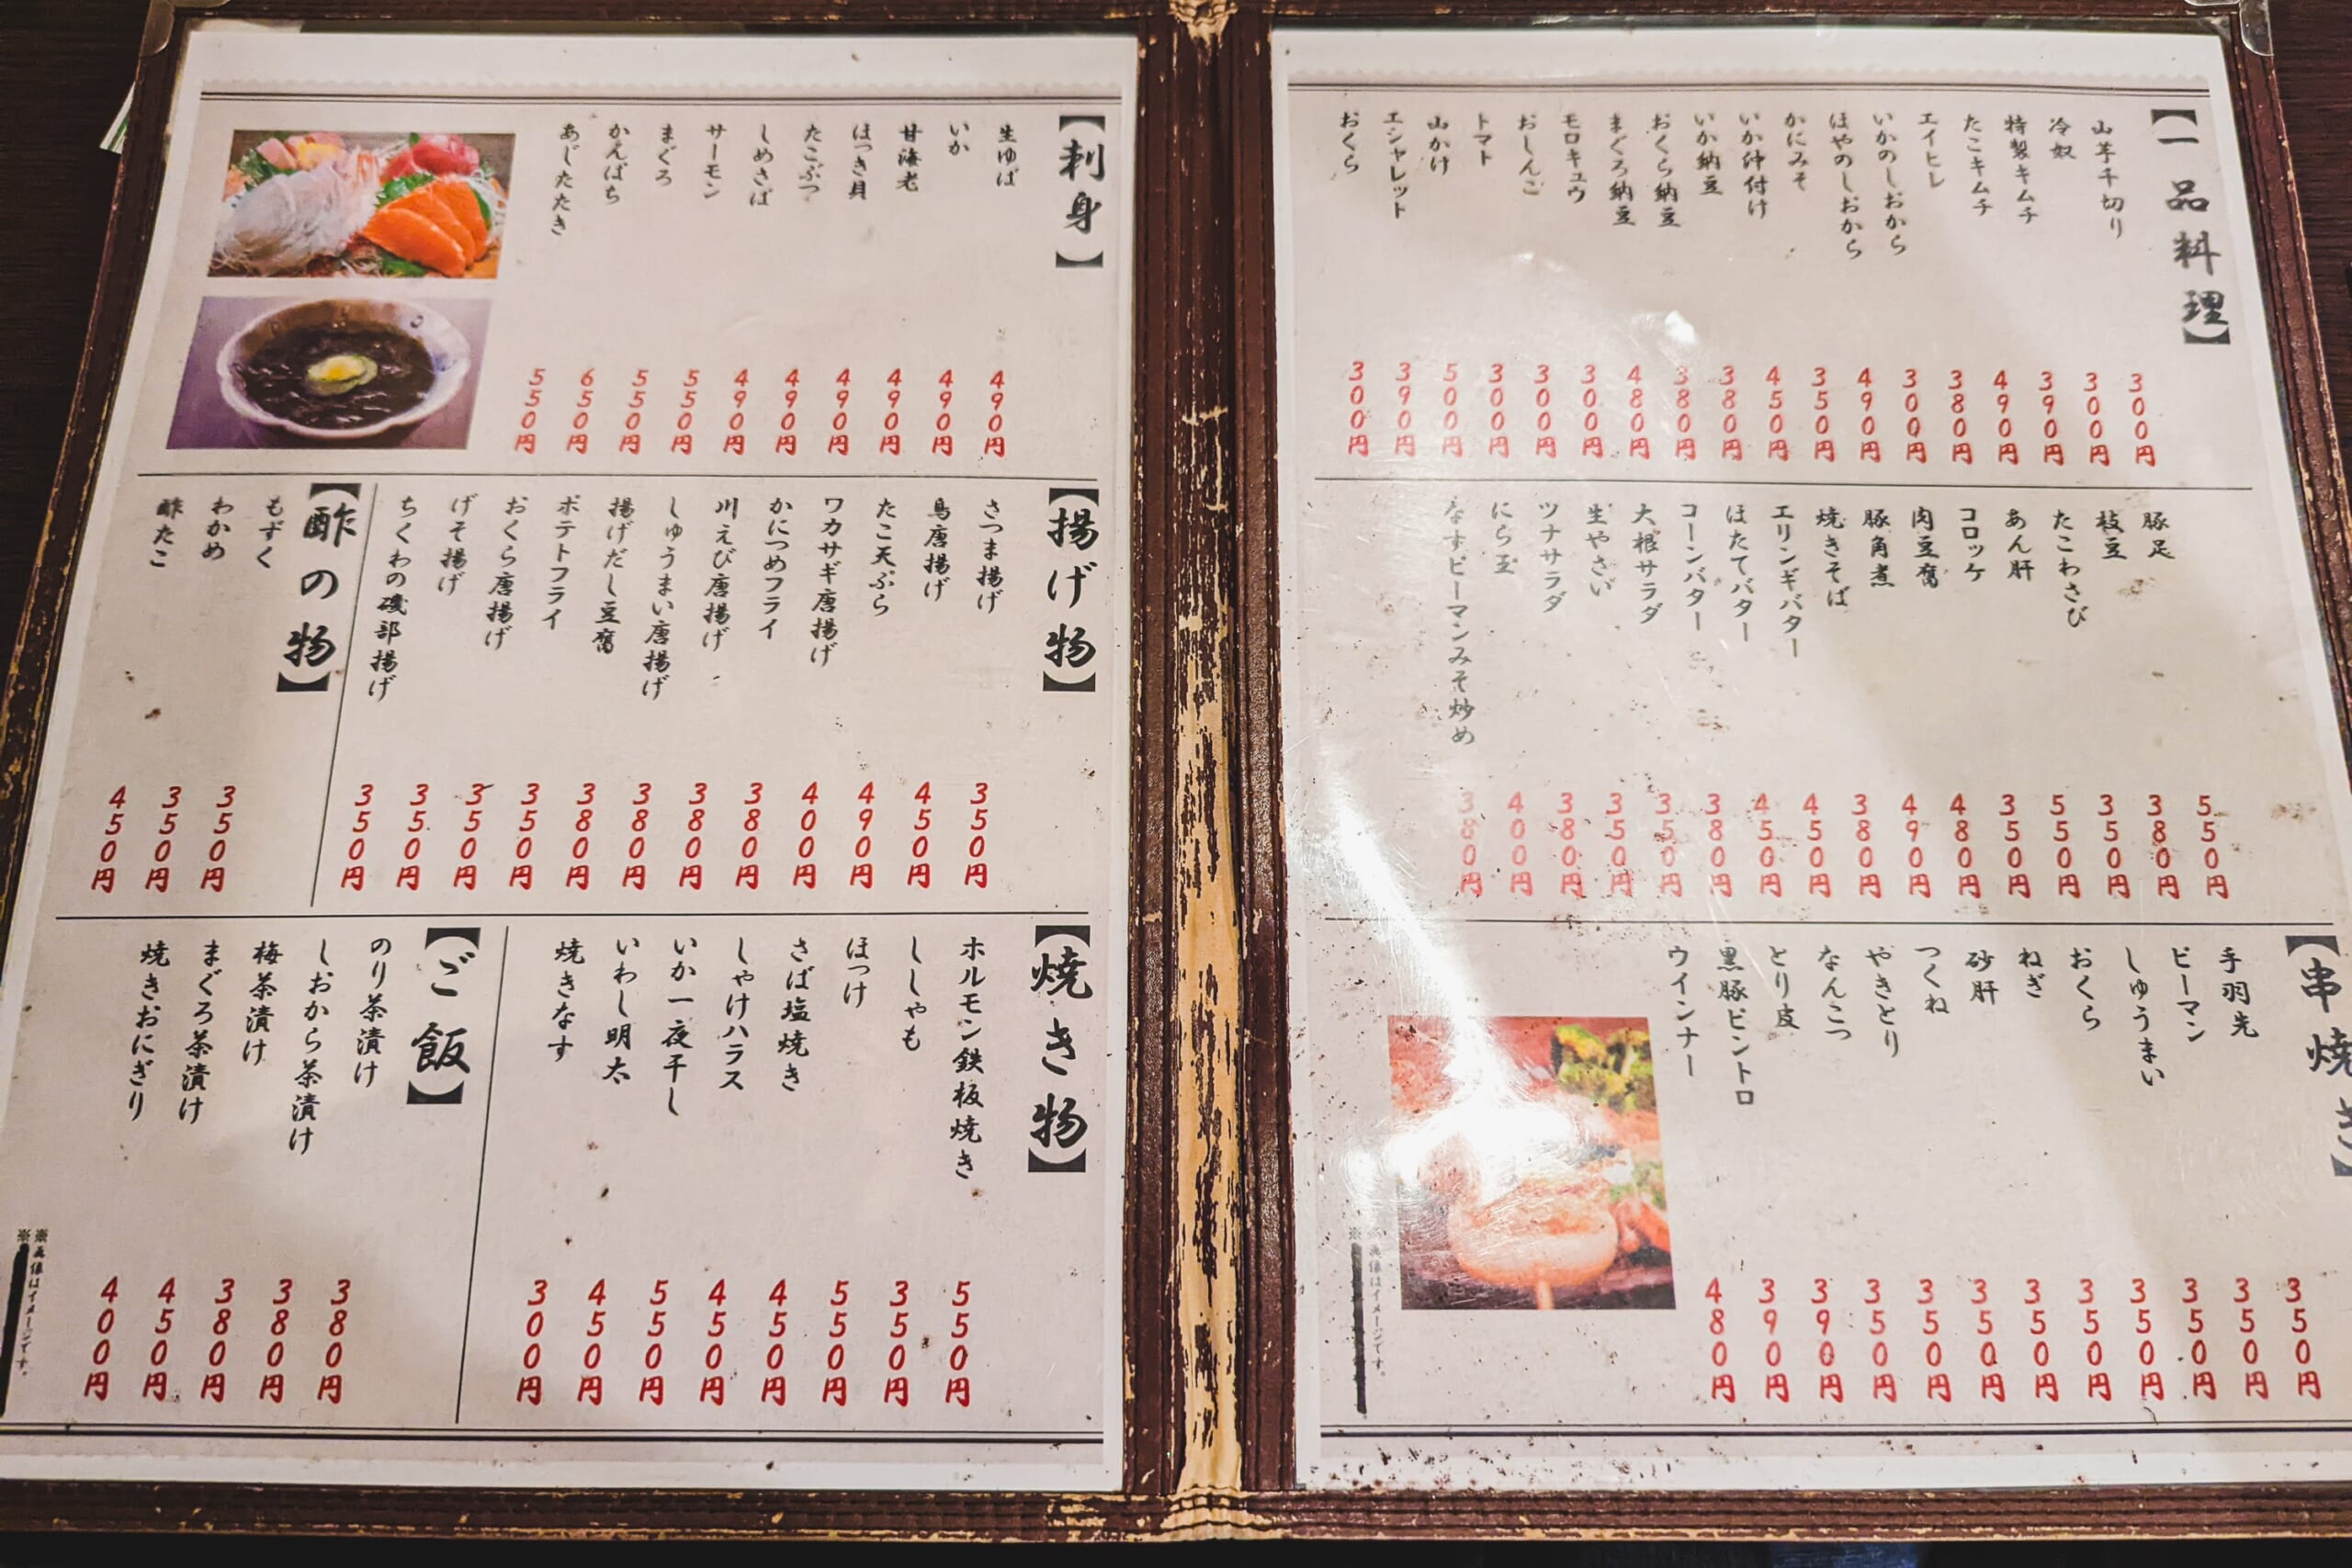 【一品料理】
山芋千切り 300円
冷奴 300円
特製キムチ 390円
たこキムチ 490円
エイヒレ 380円
いかのしおから 300円
ほやのしおから 490円
かにみそ 350円
いか沖付け 450円
いか納豆 380円
おくら納豆 380円
まぐろ納豆 480円
モロキュウ 300円
おしんこ 300円
トマト 300円
山かけ 500円
エシャレット 390円
おくら 300円
豚足 550円
枝豆 380円
たこわさび 350円
あん肝 550円
コロッケ 350円
肉豆腐 480円
豚角煮 490円
焼きそば 380円
エリンギバター 450円
ほたてバター 450円
コーンバター 380円
大根サラダ 350円
生やさい 350円
ツナサラダ 380円
にら玉 400円
なすピーマンみそ炒め 380円
【串焼き】
手羽先 350円
ピーマン 350円
しゅうまい 350円
おくら 350円
ねぎ 350円
砂肝 350円
つくね 350円
やきとり 350円
なんこつ 350円
とり皮 390円
黒豚ピントロ 390円
ウインナー 480円
※画像はイメージです。
※
【刺身】
生ゆば 490円
いか 490円
甘海老 490円
ほっき貝 490円
たこぶつ 490円
しめさば 490円
サーモン 550円
まぐろ 550円
かんぱち 650円
あじたたき 550円
【揚げ物】
さつま揚げ 350円
鳥唐揚げ 450円
たこ天ぷら 490円
ワカサギ唐揚げ 400円
かにつめフライ 380円
川えび唐揚げ 380円
しゅうまい唐揚げ 380円
揚げだし豆腐 380円
ポテトフライ 350円
おくら唐揚げ 350円
げそ揚げ 350円
ちくわの磯部揚げ 350円
【酢の物】
もずく 350円
わかめ 350円
酢たこ 450円
【焼き物】
ホルモン鉄板焼き 550円
ししゃも 350円
ほっけ 550円
さば塩焼き 450円
しゃけハラス 450円
いか一夜干し 550円
いわし明太 450円
焼きなす 300円
【ご飯】
のり茶漬け 380円
しおから茶漬け 380円
梅茶漬け 380円
まぐろ茶漬け 450円
焼きおにぎり 400円
※画像はイメージです。
※